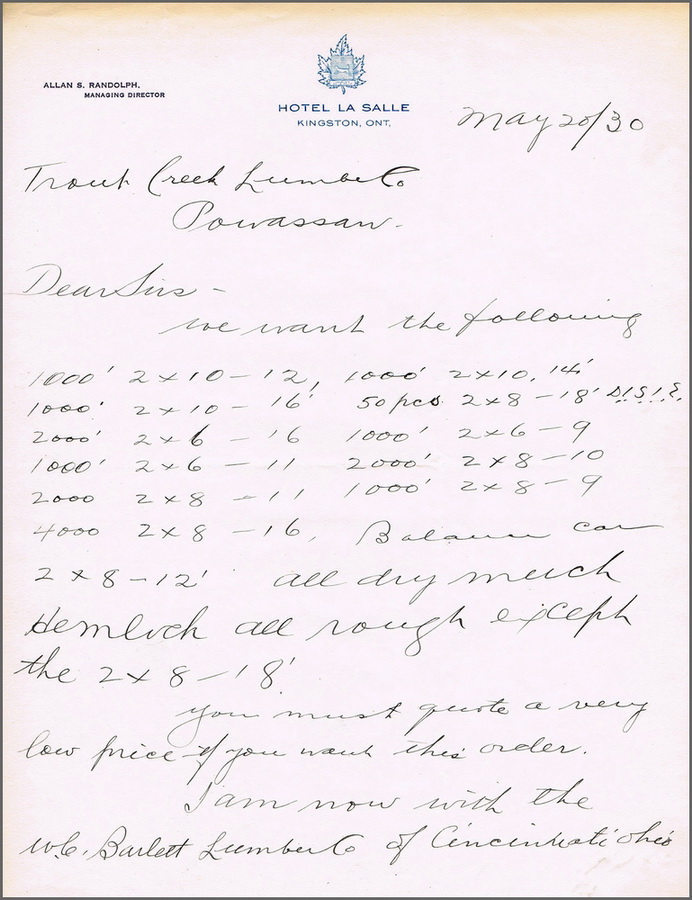 ALLAN S. RANDOLPH,
MANAGING DIRECTOR
HOTEL LA SALLE
KINGSTON, ONT.
May 20/30
Trout Creek Lumber Co
Powassan.
Dear Sirs -
we want the following
1000' 2x10 - 12, 1000' 2x10, 14'
1000' 2x10 - 16' 50 pcs 2x8 - 18' D.1.S.1.E.
2000' 2x6 - 16 1000' 2x6 - 9
1000' 2x6 - 11 2000' 2x8 - 10
2000 2x8 - 11 1000' 2x8 - 9
4000 2x8 - 16, Balance car
2x8 - 12' all dry merch
Hemlock all rough except
the 2x8 - 18'
you must quote a very
low price if you want this order.
I am now with the
W.C. Barlett Lumber Co of Cincinnati Ohio